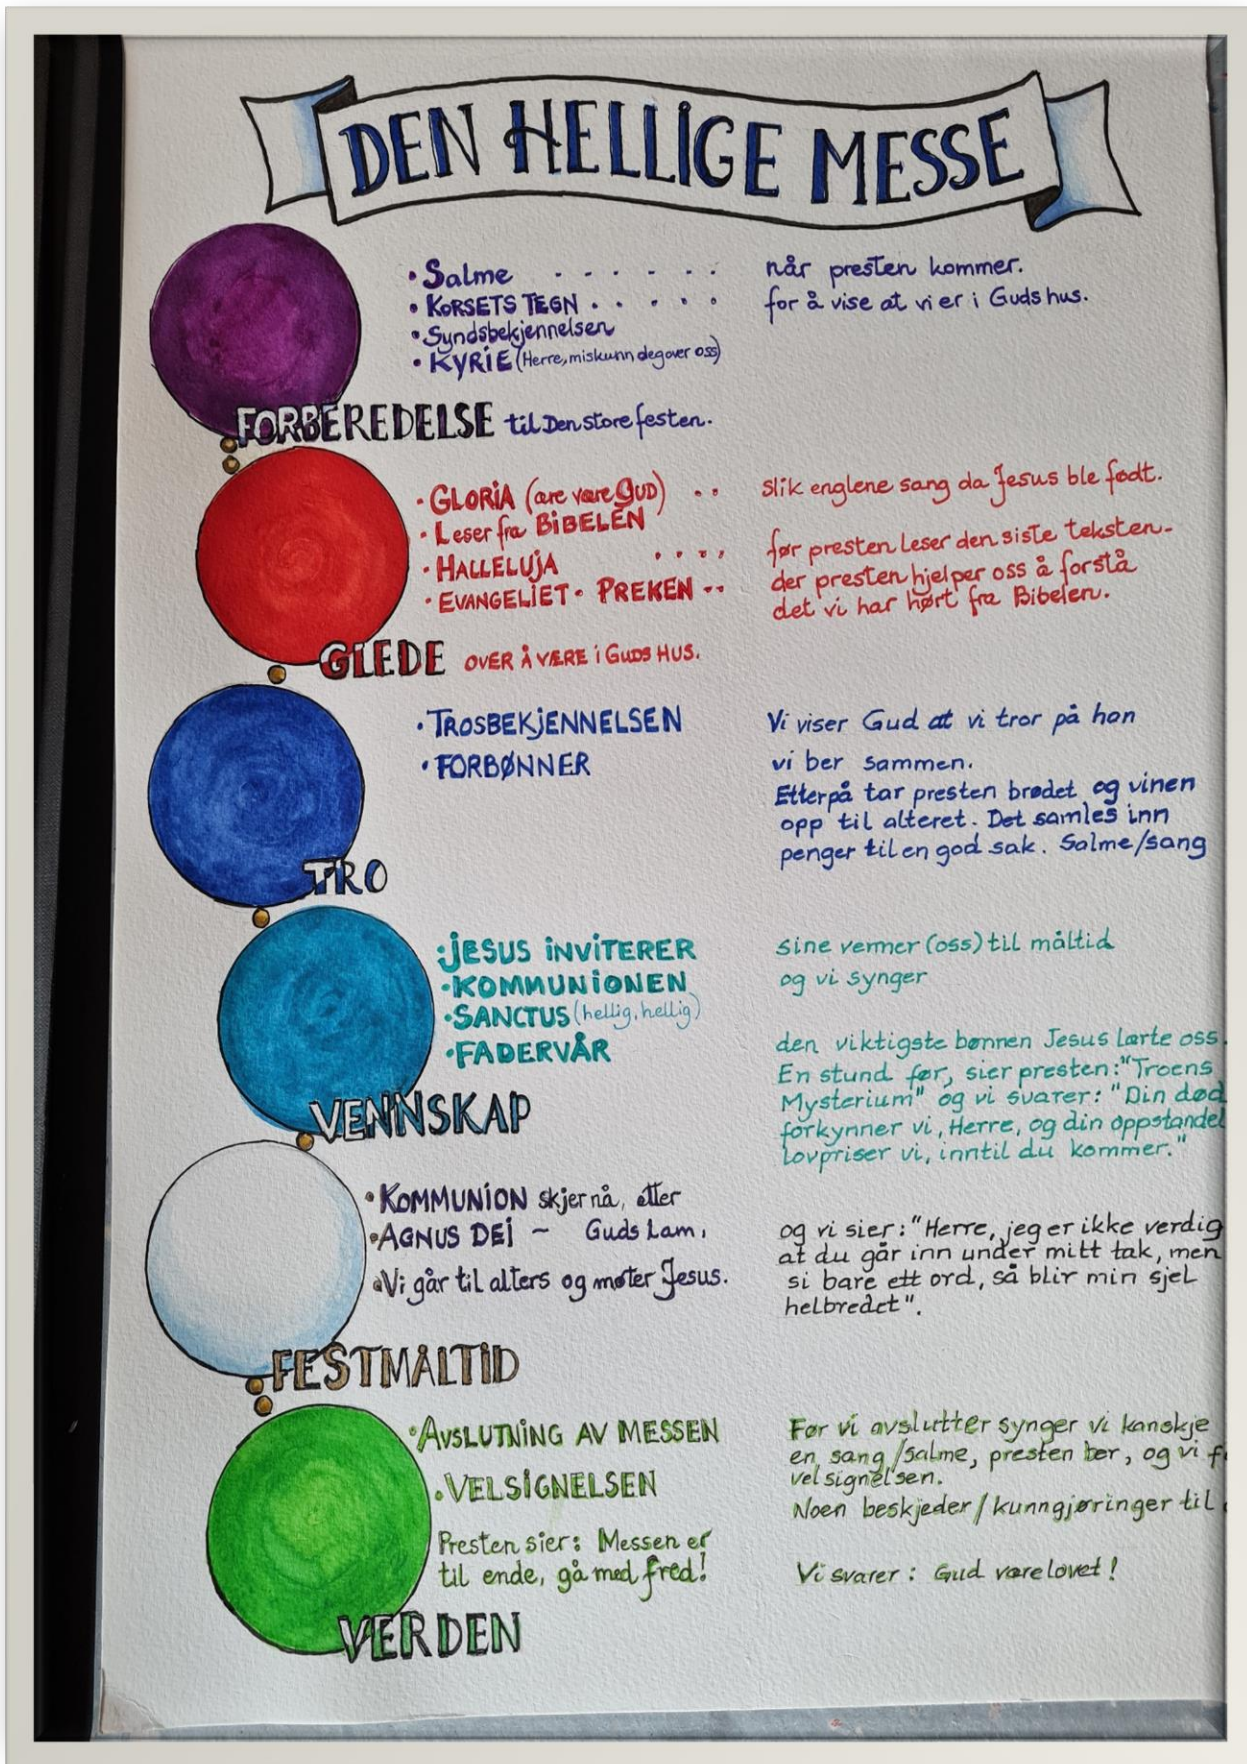 DEN HELLIGE MESSE
• Salme - - - - - - når presten kommer.
• KORSETS TEGN . . . . . . for å vise at vi er i Guds hus.
• Syndsbekjennelsen
• KYRIE (Herre, miskunn deg over oss)
FORBEREDELSE til Den store festen.
• GLORIA (ære være GUD) . . slik englene sang da Jesus ble født.
• Leser fra BIBELEN
• HALLELUJA . . . . før presten leser den siste teksten-
• EVANGELIET • PREKEN -- der presten hjelper oss å forstå
det vi har hørt fra Bibelen.
GLEDE OVER Å VÆRE i GUDS HUS.
• TROSBEKJENNELSEN Vi viser Gud at vi tror på han
• FORBØNNER vi ber sammen.
Etterpå tar presten brødet og vinen
opp til alteret. Det samles inn
penger til en god sak. Salme/sang
TRO
• JESUS INVITERER sine venner (oss) til måltid
• KOMMUNIONEN og vi synger
• SANCTUS (hellig, hellig)
• FADERVÅR den viktigste bønnen Jesus lærte oss.
En stund før, sier presten: "Troens
Mysterium" og vi svarer: "Din død
forkynner vi, Herre, og din oppstandel
lovpriser vi, inntil du kommer."
VENNSKAP
• KOMMUNION skjer nå, etter
• AGNUS DEI ~ Guds Lam, og vi sier: "Herre, jeg er ikke verdig
at du går inn under mitt tak, men
• Vi går til alters og møter Jesus. si bare ett ord, så blir min sjel
helbredet".
FESTMÅLTID
• AVSLUTNING AV MESSEN Før vi avslutter synger vi kanskje
en sang/salme, presten ber, og vi f
• VELSIGNELSEN velsignelsen.
Noen beskjeder/kunngjøringer til
Presten sier: Messen er
til ende, gå med fred! Vi svarer: Gud være lovet!
VERDEN